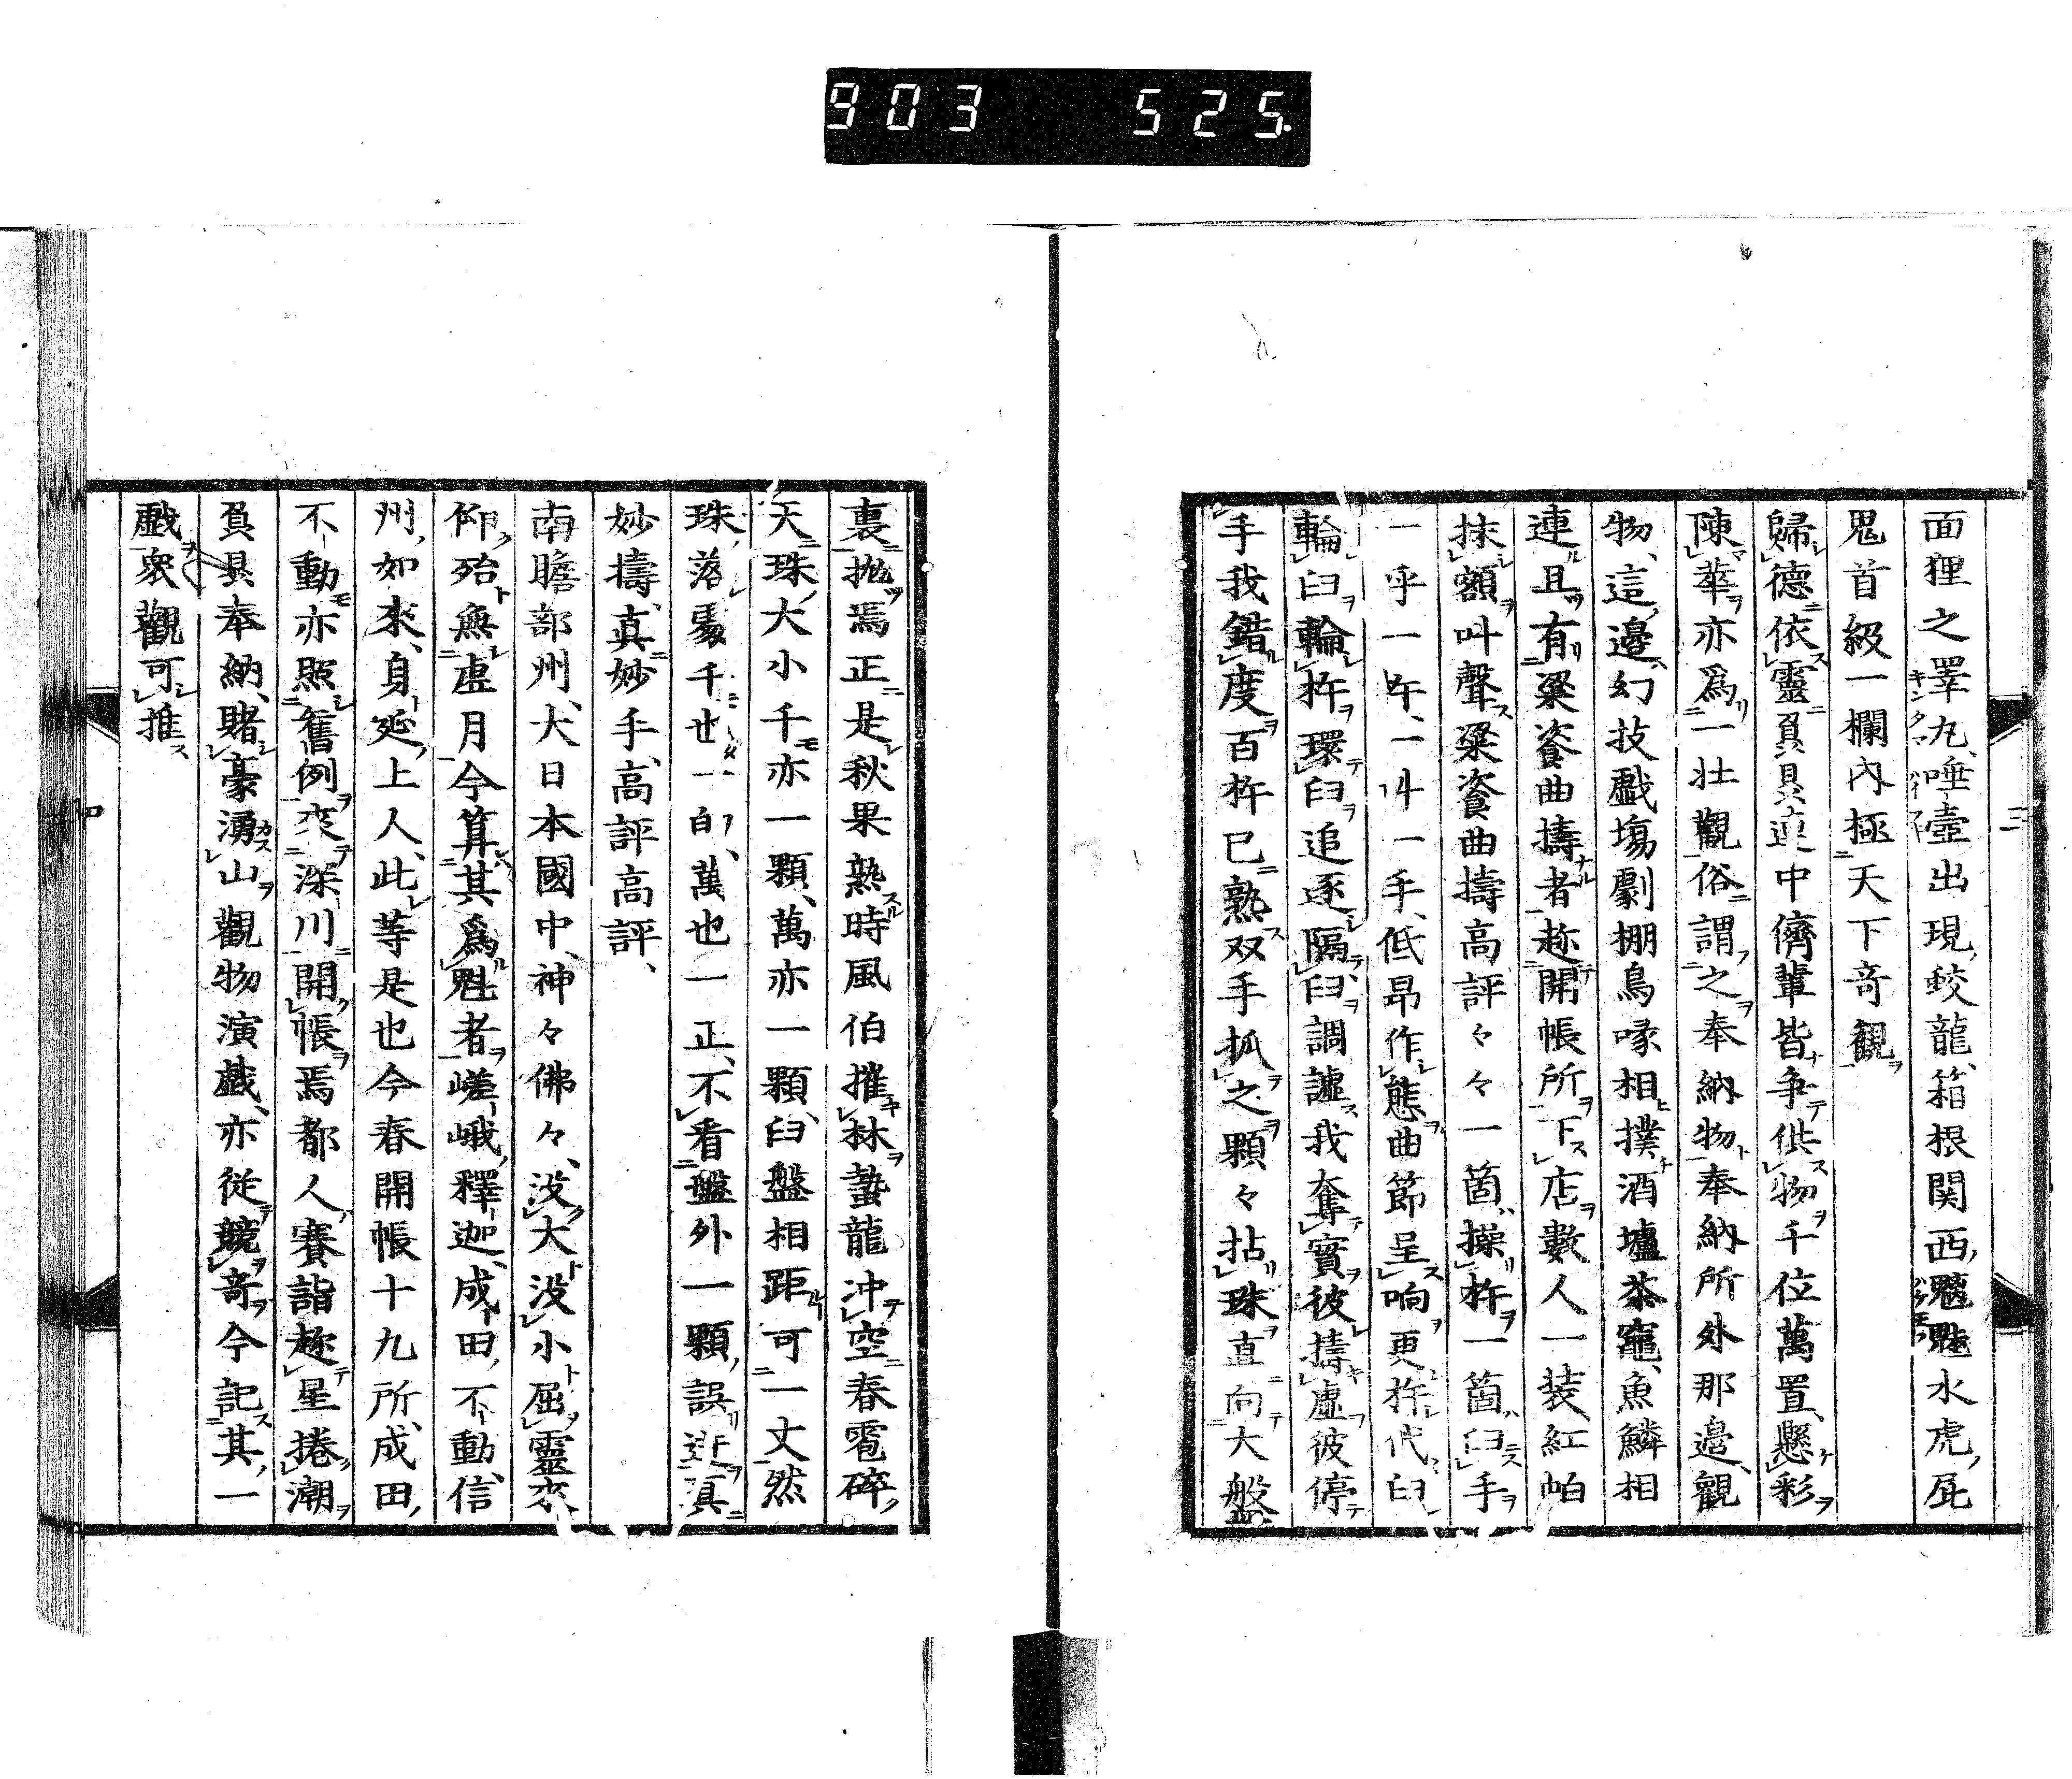 903 525
面狸之睪丸、唾壺出現、蛟龍、箱根関西、魑魅水虎、屁
鬼首級一欄內極天下奇観
歸德依靈負具連中儕輩皆争供物千位萬置、懸彩
陳華亦爲一壮觀俗謂之奉納物奉納所外那邉、觀
物、這邉幻技戲場劇棚鳥喙相撲酒壚茶竈、魚鱗相
連且有粱餈曲擣者趂開帳所下店數人一装紅帕
抹額叫聲粱餈曲擣高評々々一箇操杵一箇臼手
一乎一午、一叫一手、低昂作態曲節呈响更杵代臼
輪臼輪杵環臼追逐隔臼調謔我奪實彼擣虛彼停
手我錯度百杵已熟双手抓之顆々拈珠直向大盤
裏抛焉正是秋果熟時風伯摧林蟄龍冲空春雹碎
天珠大小千亦一顆、萬亦一顆、臼盤相距可一丈然
珠落處千一萬也一正、不看盤外一顆誤逆真
妙擣、真妙手、高評高評、
南瞻部州、大日本國中、神々佛々、没大没小屈靈來
仰殆無虛月今算其爲魁者嵯峨、釋迦、成田、不動、信
州、如來、身延、上人、此等是也今春開帳十九所、成田、
不動亦照舊例來深川開帳焉都人賽詣趂星捲潮
負具奉納、賭豪湧山觀物演戲、亦從競奇今記其一
戲衆觀可推
三
四